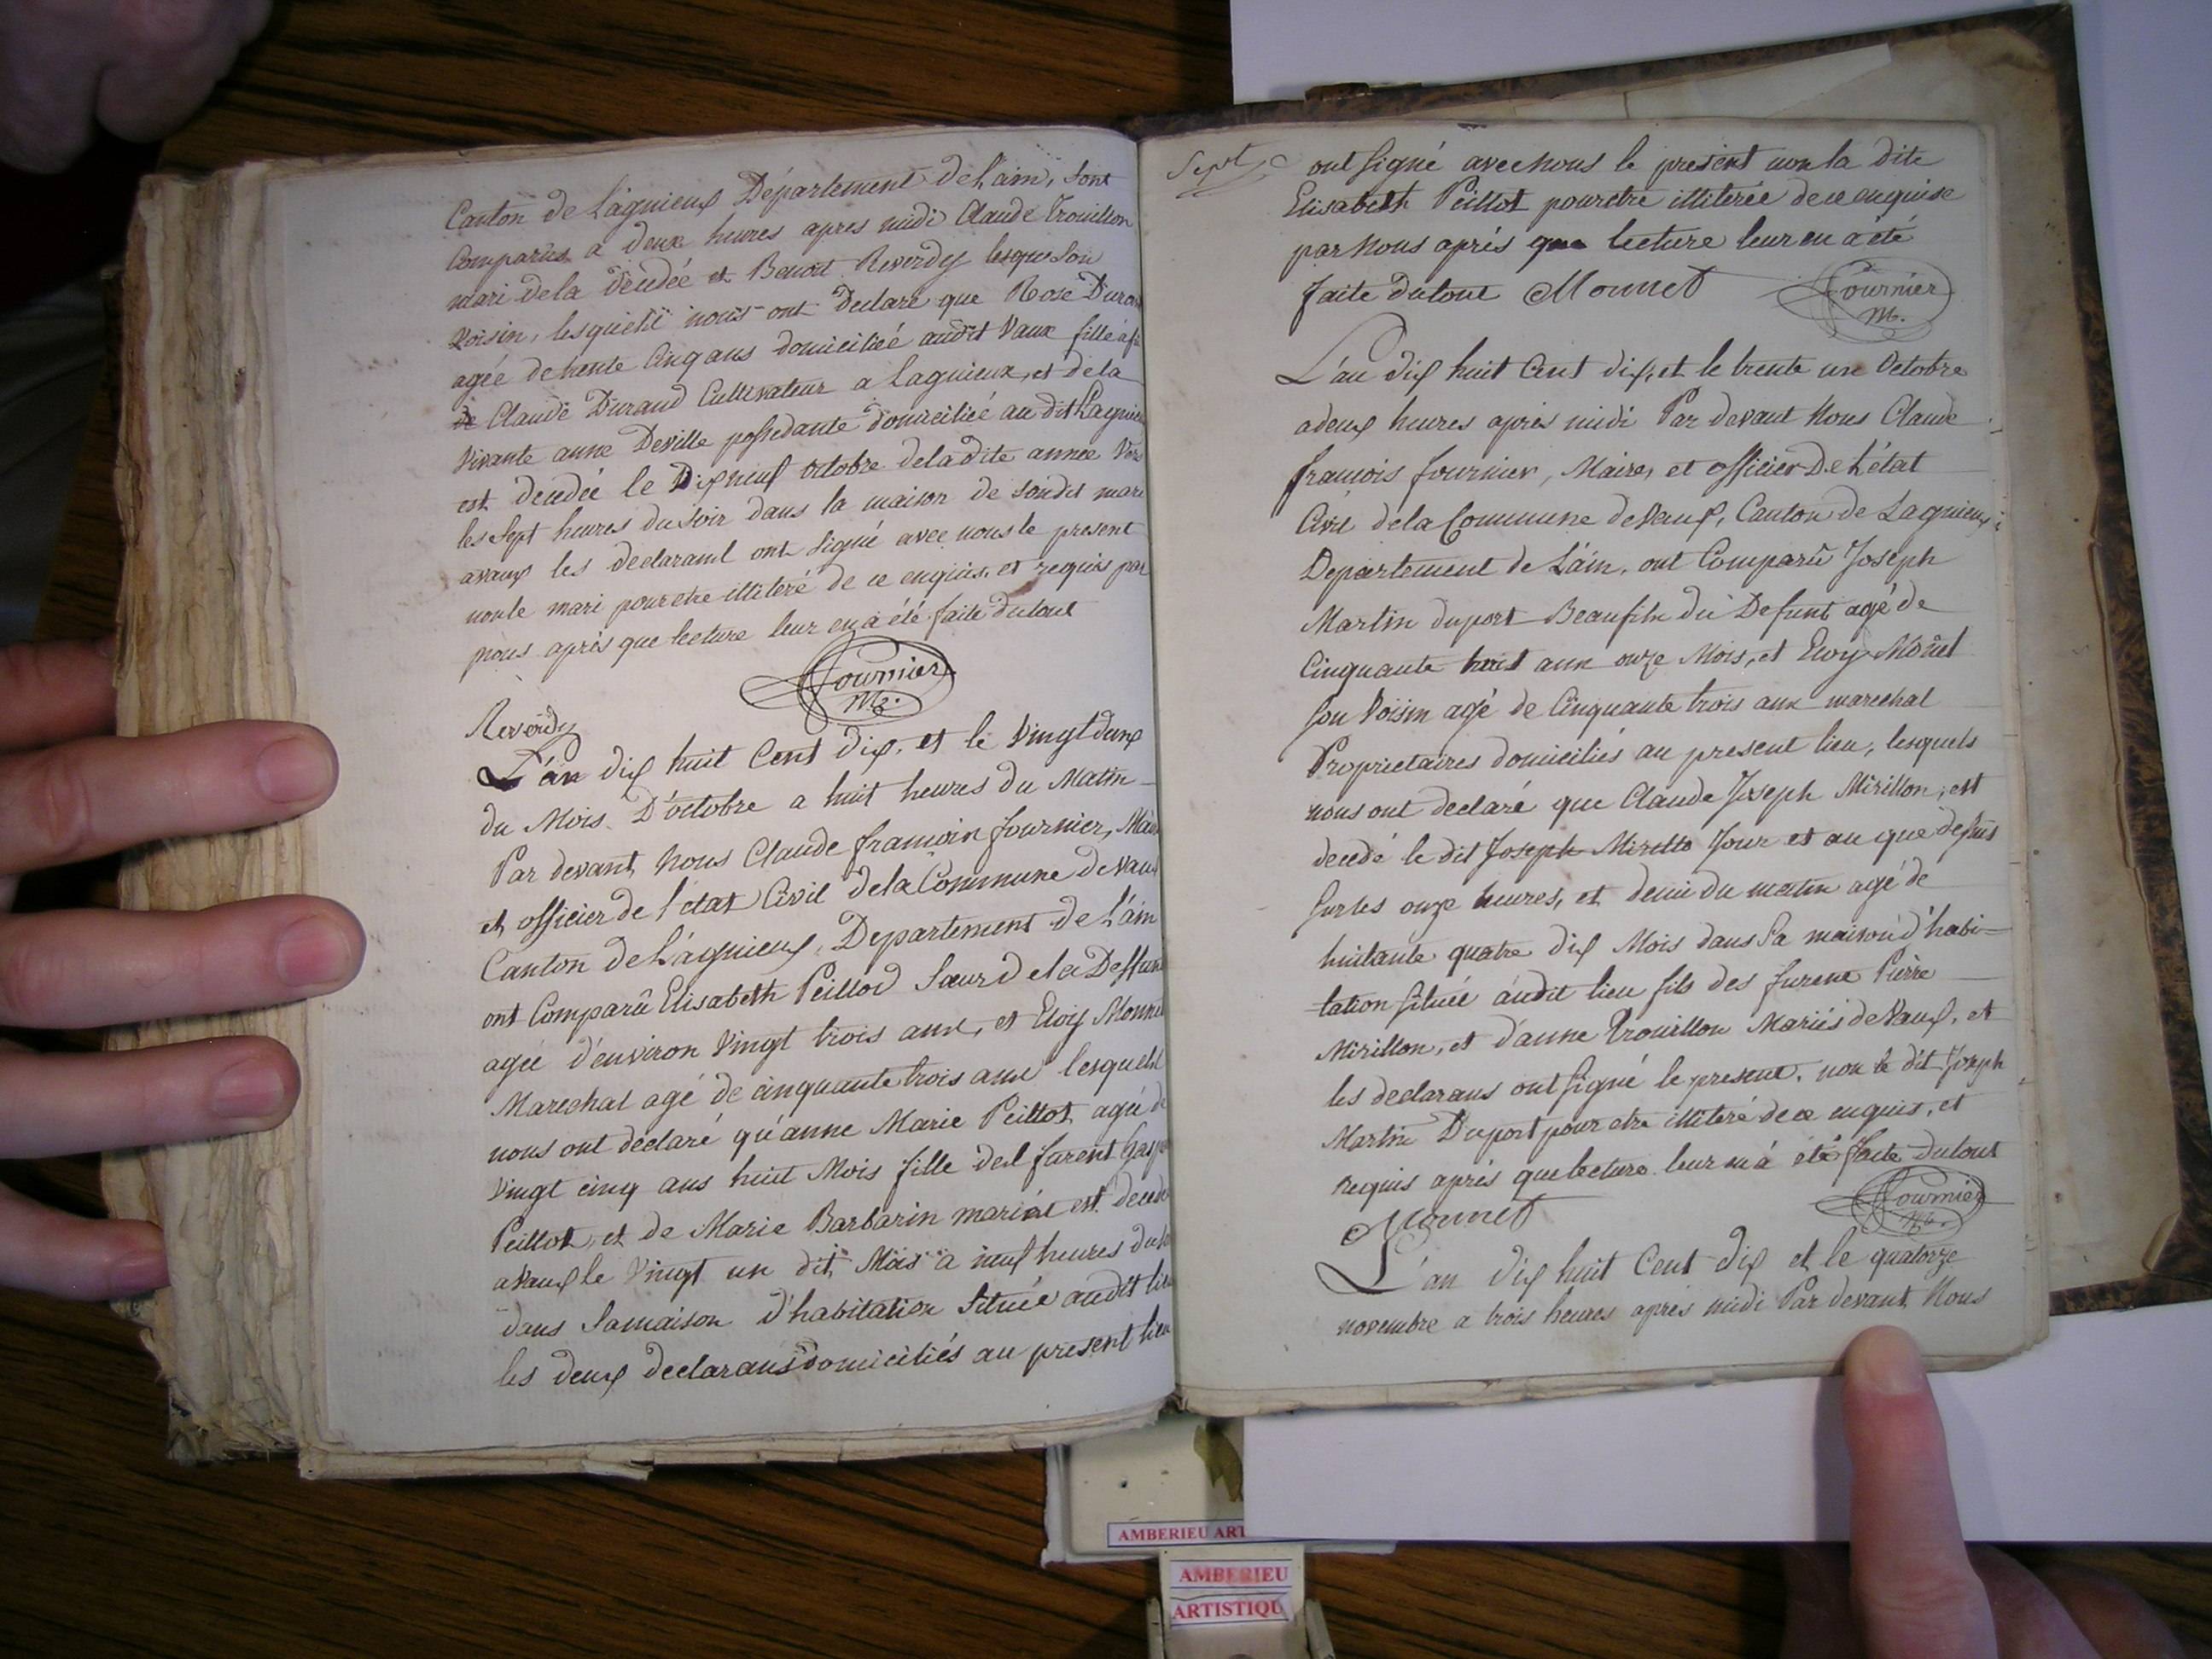 Canton de Lagnieux Département de l'ain, sont
Comparus a deux heures apres midi Claude Trouillon
mari de la décédée et Benoit Reverdy lesque son
voisin, lesquels nous ont Declaré que Rose Duran
agée de trente Cinq ans domiciliée audit Vaux fille
de Claude Durand Cultivateur a Lagnieux, et de la
vivante anne Deville possedante domiciliée au dit Lagnieu
est decedée le Dix neuf octobre de la dite année Vers
les sept heures du soir dans la maison de son dit mari
avaux les declarant ont signé avec nous le present
non le mari pour etre illiteré de ce enquis, et requis par
nous après que lecture leur en a été faite du tout
Fournier
M.
Reverdy
L'an dix huit Cent dix, et le vingt deux
du Mois D'octobre a huit heures du Matin
Par devant nous Claude françois fournier, Mair
et officier de l'état Civil de la Commune de Vaux
Canton de Lagnieux, Departement de L'ain
ont Comparû Elisabeth Peillod Sœur de la Deffun
agée d'environ vingt trois ans, et Eloy Monnet
Marechal agé de cinquante trois ans lesquels
nous ont déclaré qu'anne Marie Peillot, agée de
vingt cinq ans huit Mois fille des furent
Peillot, et de Marie Barbarin mariés est decedé
avaux le vingt un dit Mois a neuf heures du
dans sa maison d'habitation située audit lieu
les deux declarans domiciliés au present lieu
Sept
ont signé avec nous le present non la dite
Elisabeth Peillot pour etre illiterée de ce enquise
par Nous après que lecture leur en a été
faite du tout Monnet Fournier
M.
L'an dix huit Cent dix, et le trente un Octobre
a deux heures après midi Par devant Nous Claude
françois fournier, Maire, et officier De L'état
Civil de la Commune de Vaux, Canton de Lagnieux
Departement de L'ain, ont Comparû Joseph
Martin duport Beaufils du Defunt agé de
Cinquante huit ans onze Mois, et Eloy Monet
son Voisin agé de Cinquante trois ans marechal
Proprietaires domiciliés au present lieu, lesquels
nous ont declaré que Claude Joseph Mirillon, est
decedé le dit Joseph Jour et an que dessus
sur les onze heures, et demi du matin agé de
huitante quatre dix Mois dans Sa maison d'habi-
tation située audit lieu fils des furent Pierre
Mirillon, et d'anne Trouillon Mariés de Vaux, et
les declarans ont signé le present. non le dit Joseph
Martin Duport pour etre illiteré de ce enquis, et
requis après que lecture leur en a été faite du tout
Monnet Fournier
M.
L'an dix huit Cent dix et le quatorze
novembre a trois heures après midi Par devant Nous
AMBERIEU ART
AMBERIEU
ARTISTIQU